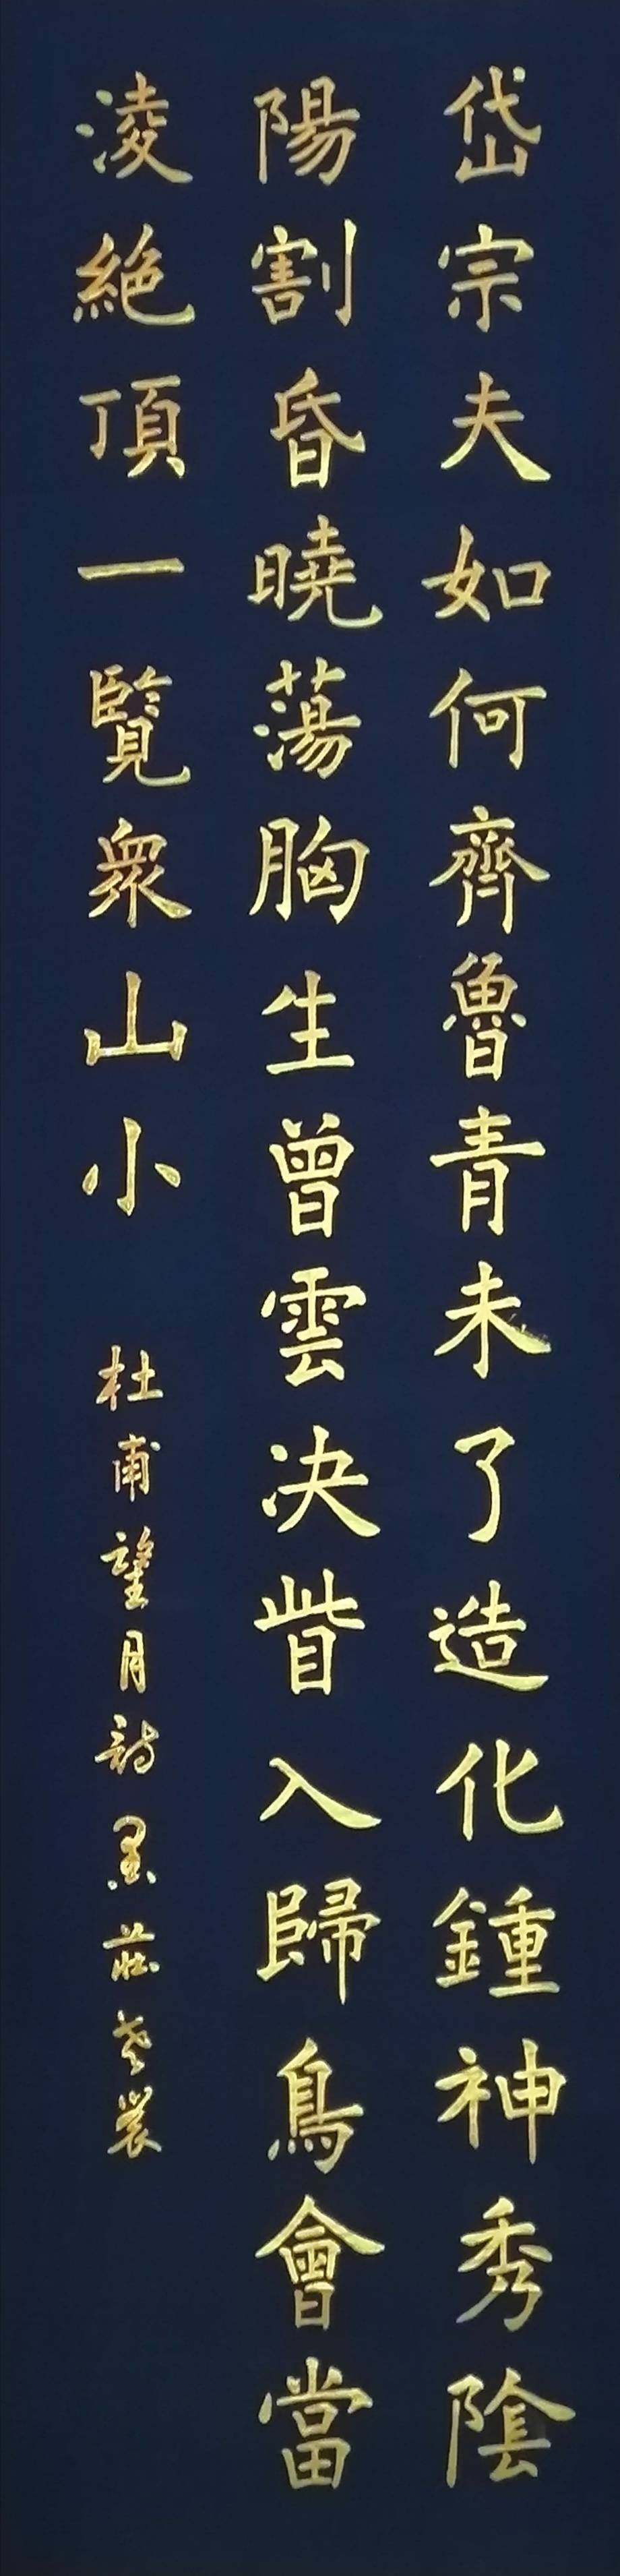 岱宗夫如何齊魯青未了造化鍾神秀陰
陽割昏曉蕩胸生曾雲決眥入歸鳥會當
淩絕頂一覽衆山小
杜甫望月詩 墨莊老農